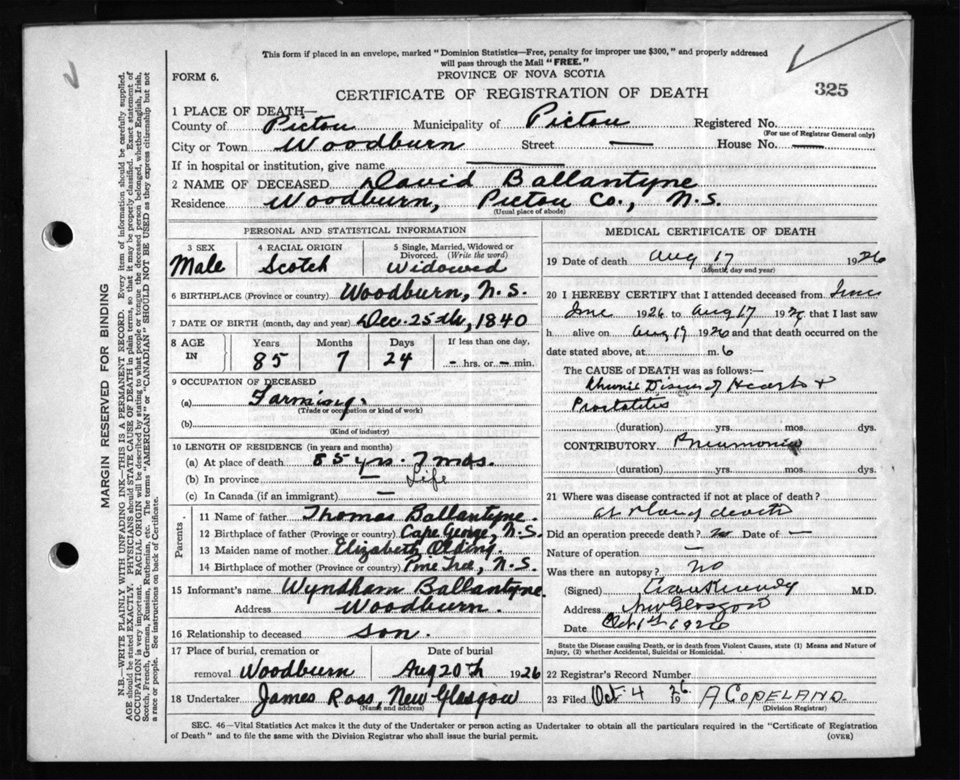 This form if placed in an envelope, marked "Dominion Statistics—Free, penalty for improper use $300," and properly addressed
will pass through the Mail "FREE."
FORM 6.
PROVINCE OF NOVA SCOTIA
CERTIFICATE OF REGISTRATION OF DEATH
325
1 PLACE OF DEATH—
County of Pictou Municipality of Pictou Registered No.
(For use of Registrar General only)
City or Town Woodburn Street — House No. —
If in hospital or institution, give name
2 NAME OF DECEASED David Ballantyne
Residence Woodburn, Pictou Co., N.S.
(Usual place of abode)
PERSONAL AND STATISTICAL INFORMATION
3 SEX 4 RACIAL ORIGIN 5 Single, Married, Widowed or
Divorced. (Write the word)
Male Scotch Widowed
6 BIRTHPLACE (Province or country) Woodburn, N.S.
7 DATE OF BIRTH (month, day and year) Dec. 25th, 1840
8 AGE IN Years Months Days If less than one day,
85 7 24 - hrs. or - min.
9 OCCUPATION OF DECEASED
(a) Farming.
(Trade or occupation or kind of work)
(b)
(Kind of industry)
10 LENGTH OF RESIDENCE (in years and months)
(a) At place of death 85 yrs. 7 mos.
(b) In province — Life
(c) In Canada (if an immigrant) —
Parents
11 Name of father Thomas Ballantyne.
12 Birthplace of father (Province or country) Cape George, N.S.
13 Maiden name of mother Elizabeth Olding.
14 Birthplace of mother (Province or country) Pine Tree, N.S.
15 Informant's name Wyndham Ballantyne.
Address Woodburn.
16 Relationship to deceased son.
17 Place of burial, cremation or Date of burial
removal Woodburn Aug 20th 1926
18 Undertaker James Ross, New Glasgow
(Name and address)
MEDICAL CERTIFICATE OF DEATH
19 Date of death Aug 17 1926
(Month, day and year)
20 I HEREBY CERTIFY that I attended deceased from June
June 1926 to Aug 17 1926 that I last saw
h alive on Aug 17 1926 and that death occurred on the
date stated above, at m. 6
The CAUSE of DEATH was as follows:—
Chronic Disease of Heart +
Prostatitis
(duration) yrs. mos. dys.
CONTRIBUTORY. Pneumonia
(duration) yrs. mos. dys.
21 Where was disease contracted if not at place of death?
at place of death
Did an operation precede death? no Date of —
Nature of operation —
Was there an autopsy? no
(Signed) Kennedy M.D.
Address New Glasgow
Date Oct 1st 1926
State the Disease causing Death, or in death from Violent Causes, state (1) Means and Nature of
Injury, (2) whether Accidental, Suicidal or Homicidal.
22 Registrar's Record Number
23 Filed Oct 4 1926 A COPELAND.
(Division Registrar)
SEC. 46—Vital Statistics Act makes it the duty of the Undertaker or person acting as Undertaker to obtain all the particulars required in the "Certificate of Registration
of Death" and to file the same with the Division Registrar who shall issue the burial permit.
(OVER)
MARGIN RESERVED FOR BINDING
N.B.—WRITE PLAINLY WITH UNFADING INK—THIS IS A PERMANENT RECORD. Every item of information should be carefully supplied.
AGE should be stated EXACTLY. PHYSICIANS should STATE CAUSE OF DEATH in plain terms, so that it may be properly classified. Exact statement of
OCCUPATION is very important. RACIAL ORIGIN will be described by stating to what people or tongue the deceased person belonged, whether English, Irish,
Scotch, French, German, Russian, Ruthenian, etc. The terms "AMERICAN" or "CANADIAN" SHOULD NOT BE USED as they express citizenship but not
a race or people. See instructions on back of Certificate.